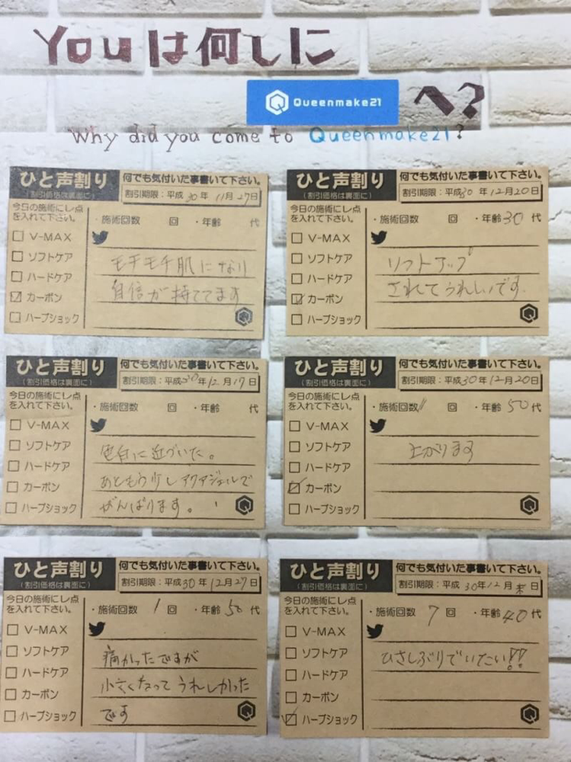 Youは何しに
Queenmake21
へ?
Why did you come to Queenmake21?
ひと声割り
(割引価格は裏面に)
何でも気付いた事書いて下さい。
割引期限:平成30年11月27日
今日の施術にレ点
を入れて下さい。
・施術回数 回 ・年齢 代
V-MAX
ソフトケア
ハードケア
カーボン
ハーブショック
モチモチ肌になり
自信が持ててます
ひと声割り
(割引価格は裏面に)
何でも気付いた事書いて下さい。
割引期限:平成30年12月20日
今日の施術にレ点
を入れて下さい。
・施術回数 回 ・年齢30代
V-MAX
ソフトケア
ハードケア
カーボン
ハーブショック
リフトアップ
されてうれしいです。
ひと声割り
(割引価格は裏面に)
何でも気付いた事書いて下さい。
割引期限:平成30年12月17日
今日の施術にレ点
を入れて下さい。
・施術回数 回 ・年齢 代
V-MAX
ソフトケア
ハードケア
カーボン
ハーブショック
色白に近づいた。
あともう少しアクアジェルで
がんばります。
ひと声割り
(割引価格は裏面に)
何でも気付いた事書いて下さい。
割引期限:平成30年12月20日
今日の施術にレ点
を入れて下さい。
・施術回数 回 ・年齢50代
V-MAX
ソフトケア
ハードケア
カーボン
ハーブショック
上がります
ひと声割り
(割引価格は裏面に)
何でも気付いた事書いて下さい。
割引期限:平成30年12月27日
今日の施術にレ点
を入れて下さい。
・施術回数 1 回 ・年齢50代
V-MAX
ソフトケア
ハードケア
カーボン
ハーブショック
痛かったですが
小さくなってうれしかった
です
ひと声割り
(割引価格は裏面に)
何でも気付いた事書いて下さい。
割引期限:平成30年12月末日
今日の施術にレ点
を入れて下さい。
・施術回数 7 回 ・年齢40代
V-MAX
ソフトケア
ハードケア
カーボン
ハーブショック
ひさしぶりでいたい!!